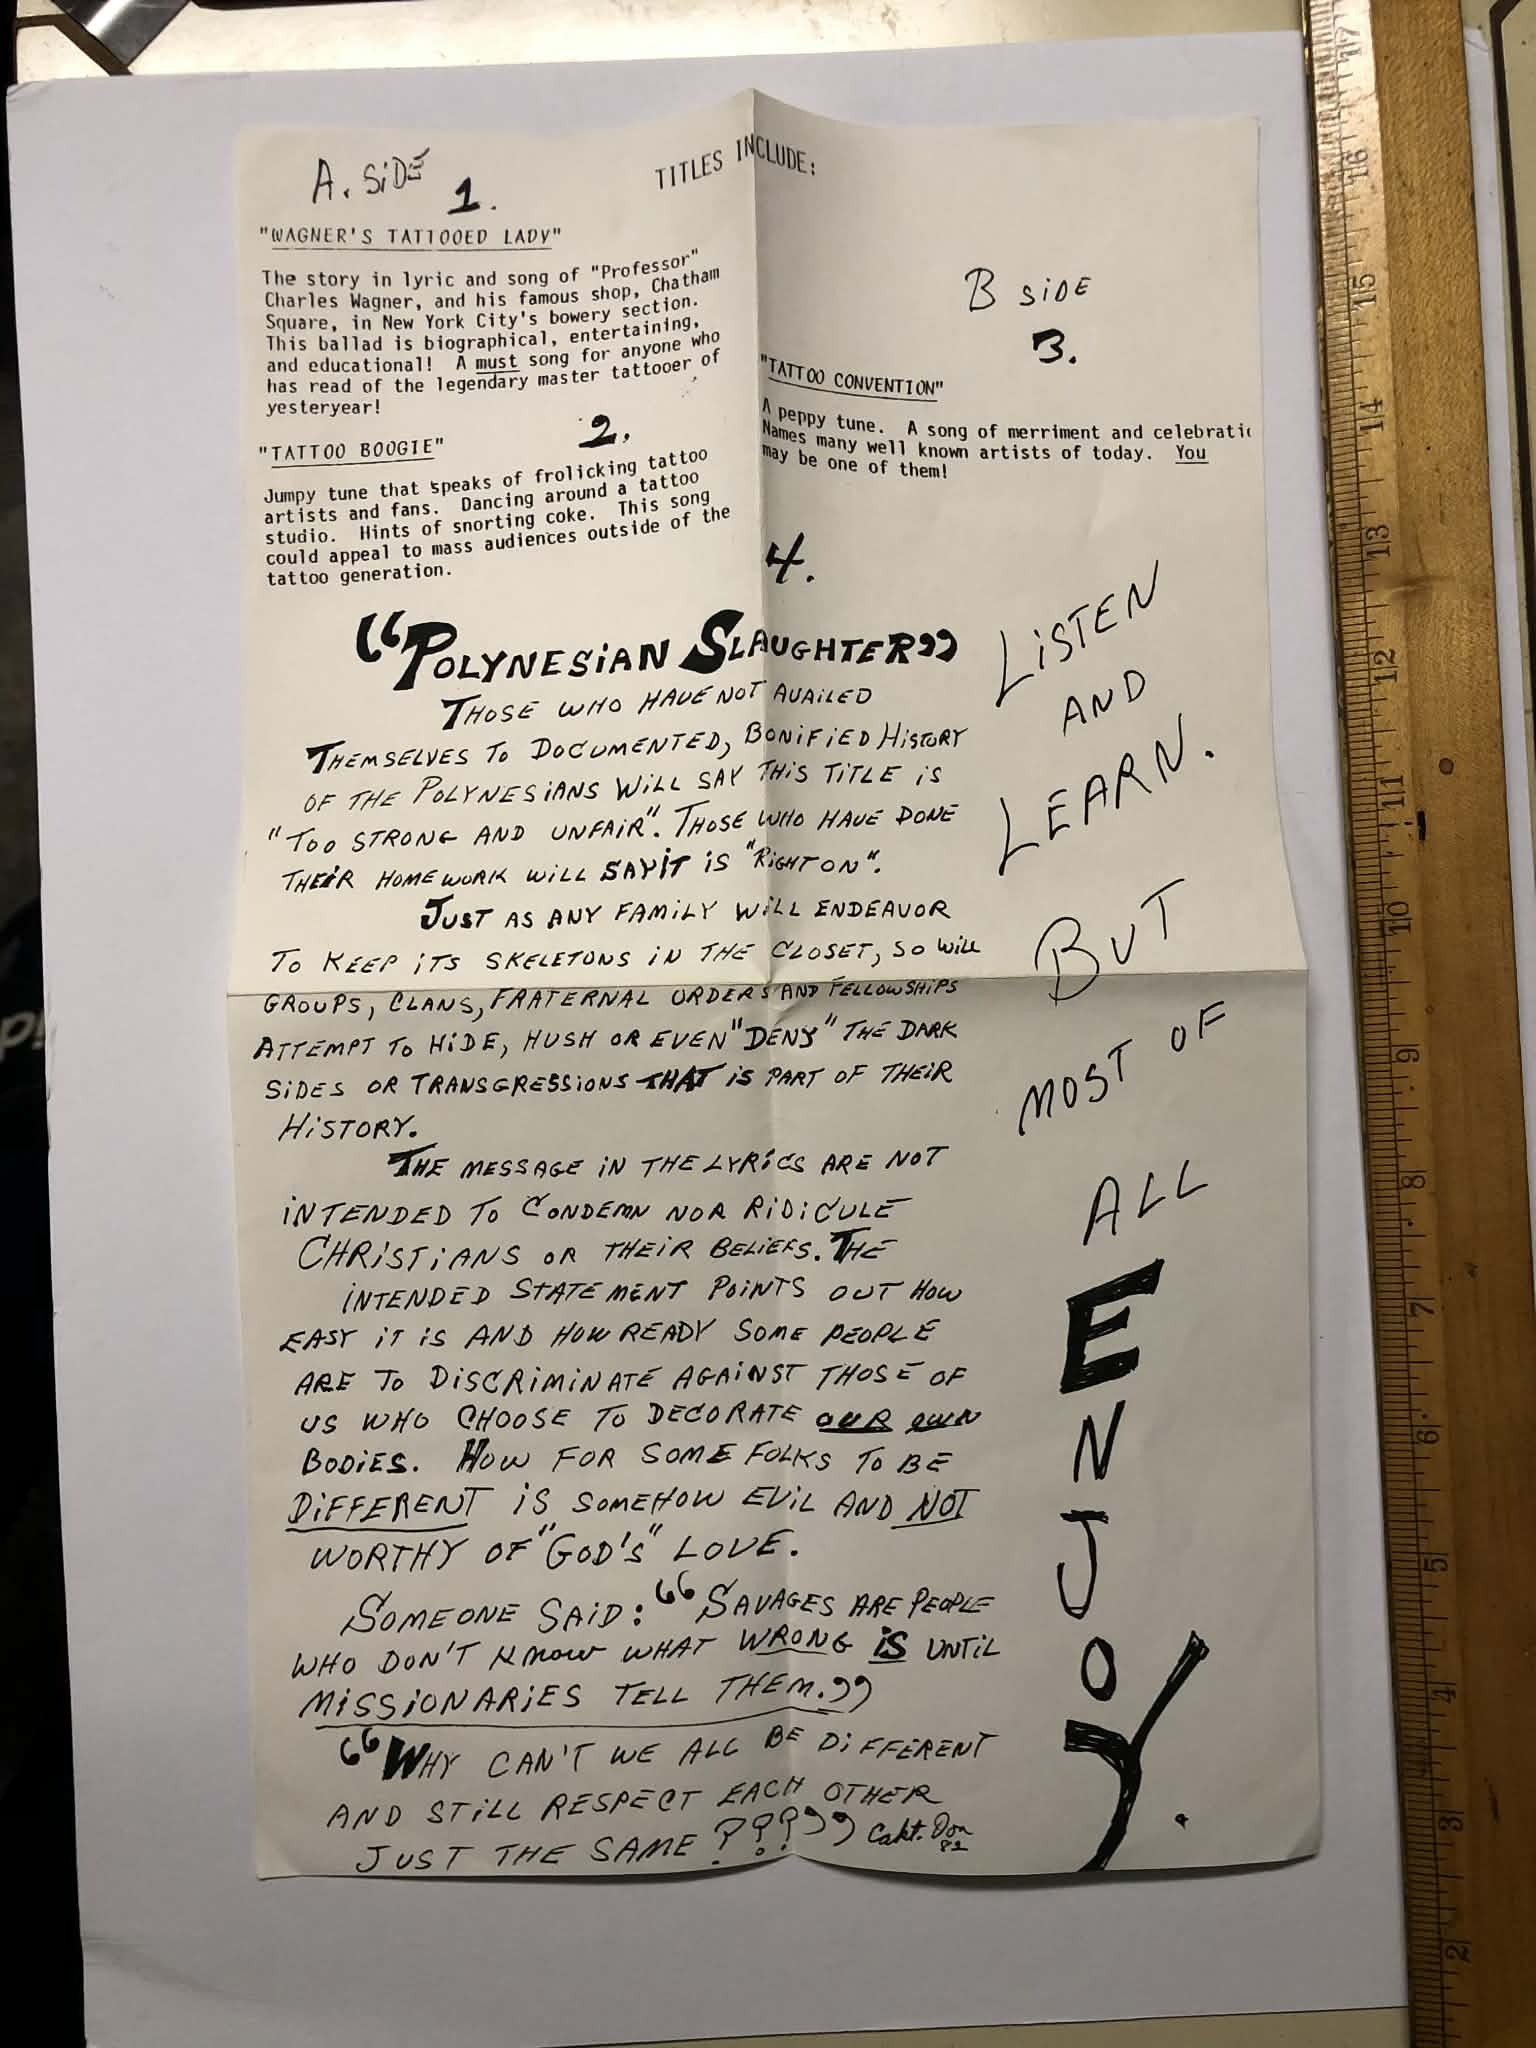 A. SiDE
TITLES INCLUDE:
1.
"WAGNER'S TATTOOED LADY"
The story in lyric and song of "Professor"
Charles Wagner, and his famous shop, Chatham
Square, in New York City's bowery section.
This ballad is biographical, entertaining,
and educational!  A must song for anyone who
has read of the legendary master tattooer of
yesteryear!
2.
"TATTOO BOOGIE"
Jumpy tune that speaks of frolicking tattoo
artists and fans.  Dancing around a tattoo
studio.  Hints of snorting coke.  This song
could appeal to mass audiences outside of the
tattoo generation.
B SiDE
3.
"TATTOO CONVENTION"
A peppy tune.  A song of merriment and celebratic
Names many well known artists of today.  You
may be one of them!
4.
"POLYNESiAN SLAUGHTER"
THOSE WHO HAVE NOT AVAILED
THEMSELVES TO DOCUMENTED, BONiFiED HiSTORY
OF THE POLYNESiANS WiLL SAY THiS TiTLE iS
"TOO STRONG AND UNFAiR". THOSE WHO HAVE DONE
THEiR HOMEWORK WiLL SAY iT iS "RiGHT ON".
JUST AS ANY FAMiLY WiLL ENDEAVOR
TO KEEP iTS SKELETONS iN THE CLOSET, SO WiLL
GROUPS, CLANS, FRATERNAL ORDERS AND FELLOWSHiPS
ATTEMPT TO HiDE, HUSH OR EVEN "DENY" THE DARK
SiDES OR TRANSGRESSiONS THAT iS PART OF THEiR
HiSTORY.
THE MESSAGE iN THE LYRiCS ARE NOT
iNTENDED TO CONDEMN NOR RiDiCULE
CHRiSTiANS OR THEiR BELiEFS. THE
iNTENDED STATEMENT POiNTS OUT HOW
EASY iT iS AND HOW READY SOME PEOPLE
ARE TO DiSCRiMiNATE AGAiNST THOSE OF
US WHO CHOOSE TO DECORATE OUR OWN
BODiES. HOW FOR SOME FOLKS TO BE
DiFFERENT iS SOMEHOW EViL AND NOT
WORTHY OF "GOD'S" LOVE.
SOMEONE SAiD: "SAVAGES ARE PEOPLE
WHO DON'T KNOW WHAT WRONG iS UNTiL
MiSSiONARiES TELL THEM."
"WHY CAN'T WE ALL BE DiFFERENT
AND STiLL RESPECT EACH OTHER
JUST THE SAME ???"
Capt. Don
82
LiSTEN
AND
LEARN.
BUT
MOST OF
ALL
E
N
J
O
Y.